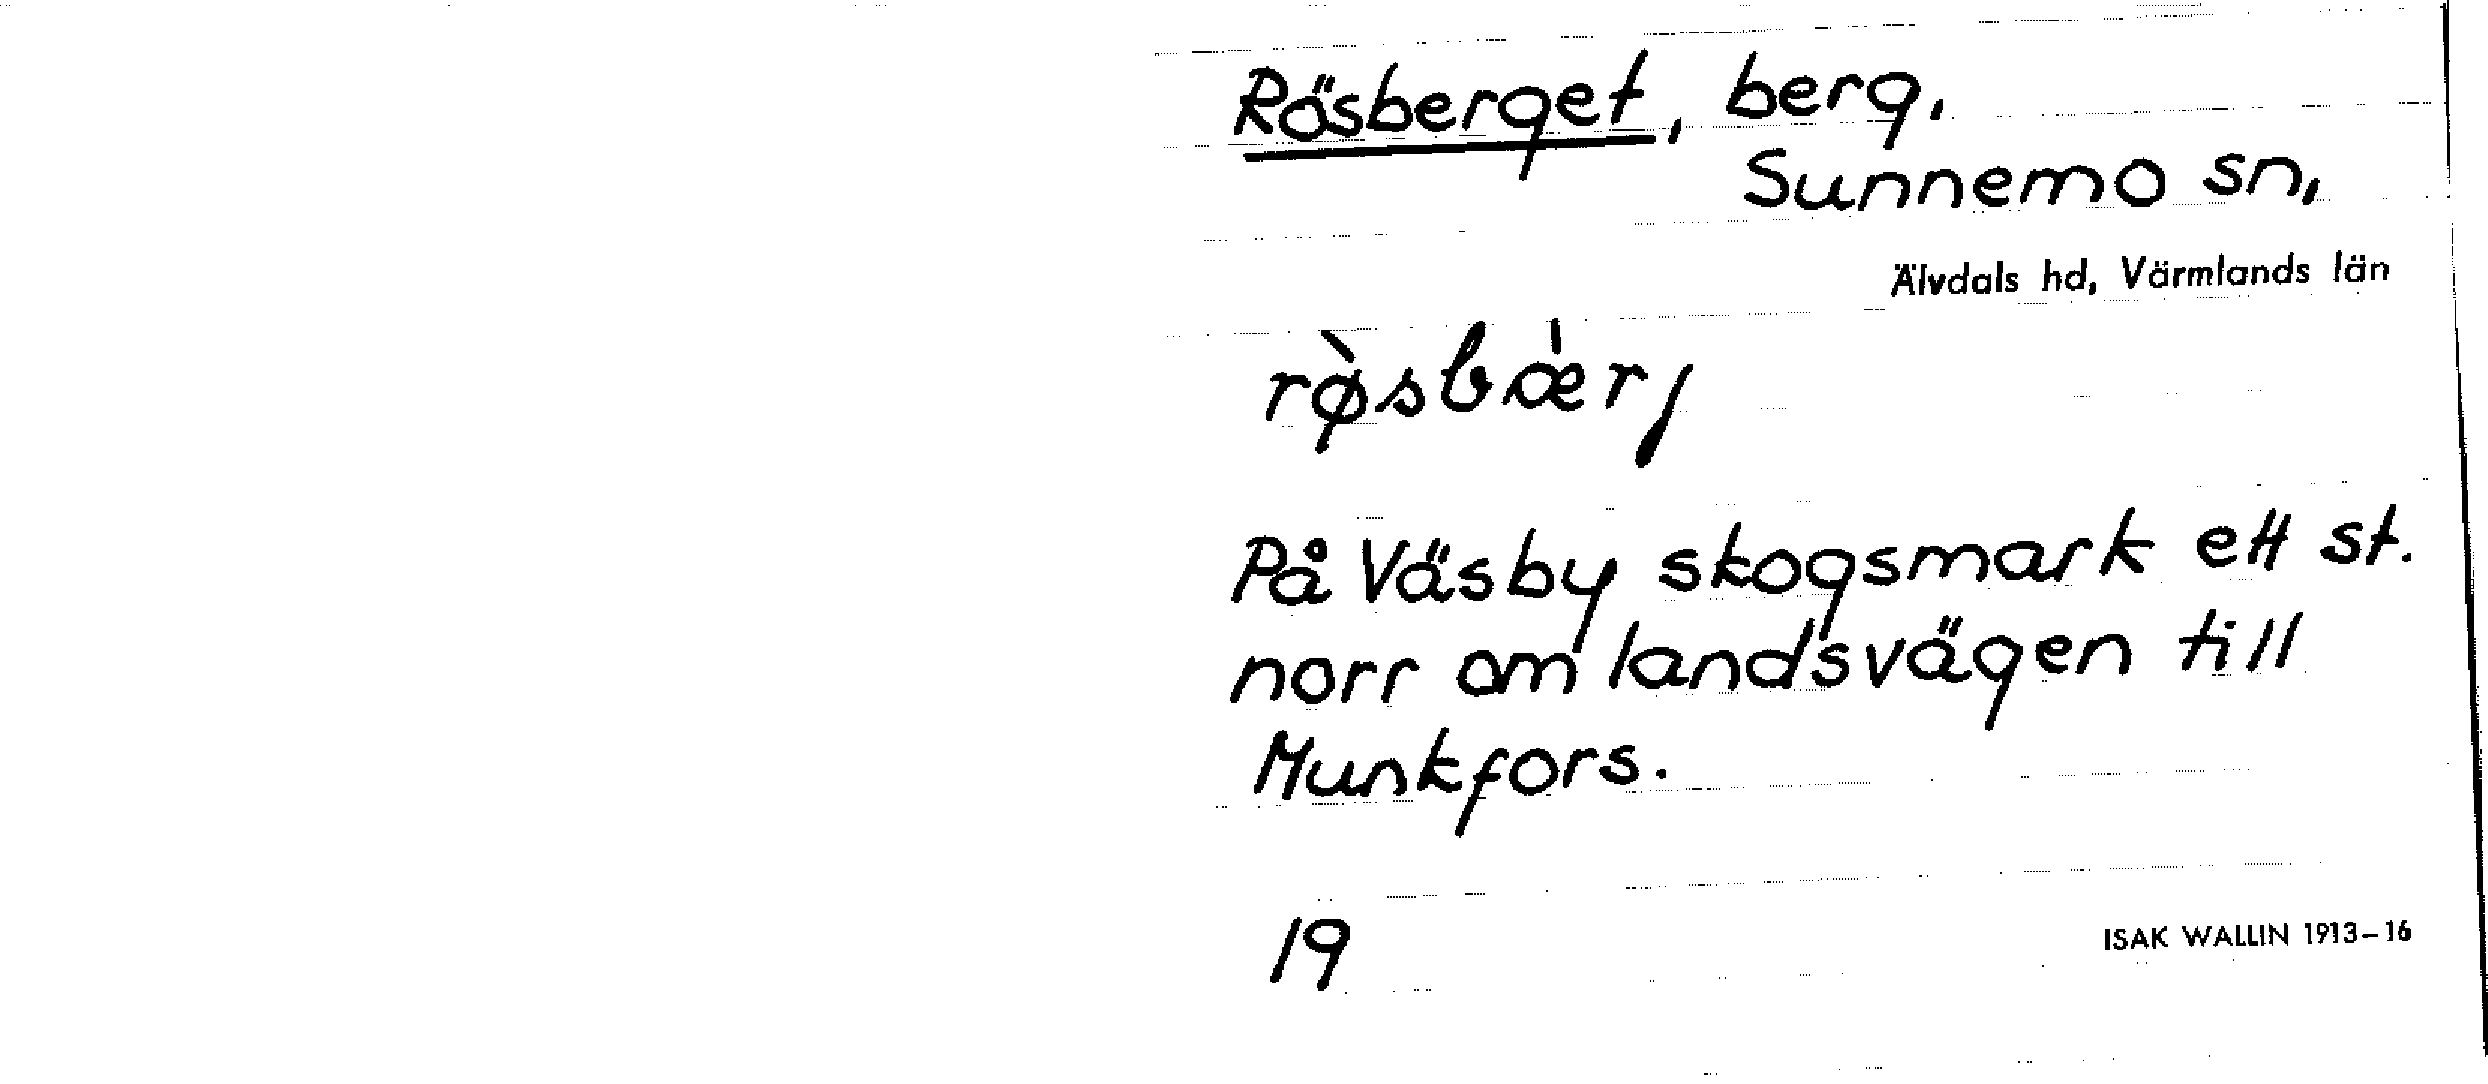 Rösberget, berg,
Sunnemo sn,
Älvdals hd, Värmlands län
rø̀sbæ̍rj
På Väsby skogsmark ett st.
norr om landsvägen till
Munkfors.
19
ISAK WALLIN 1913–16